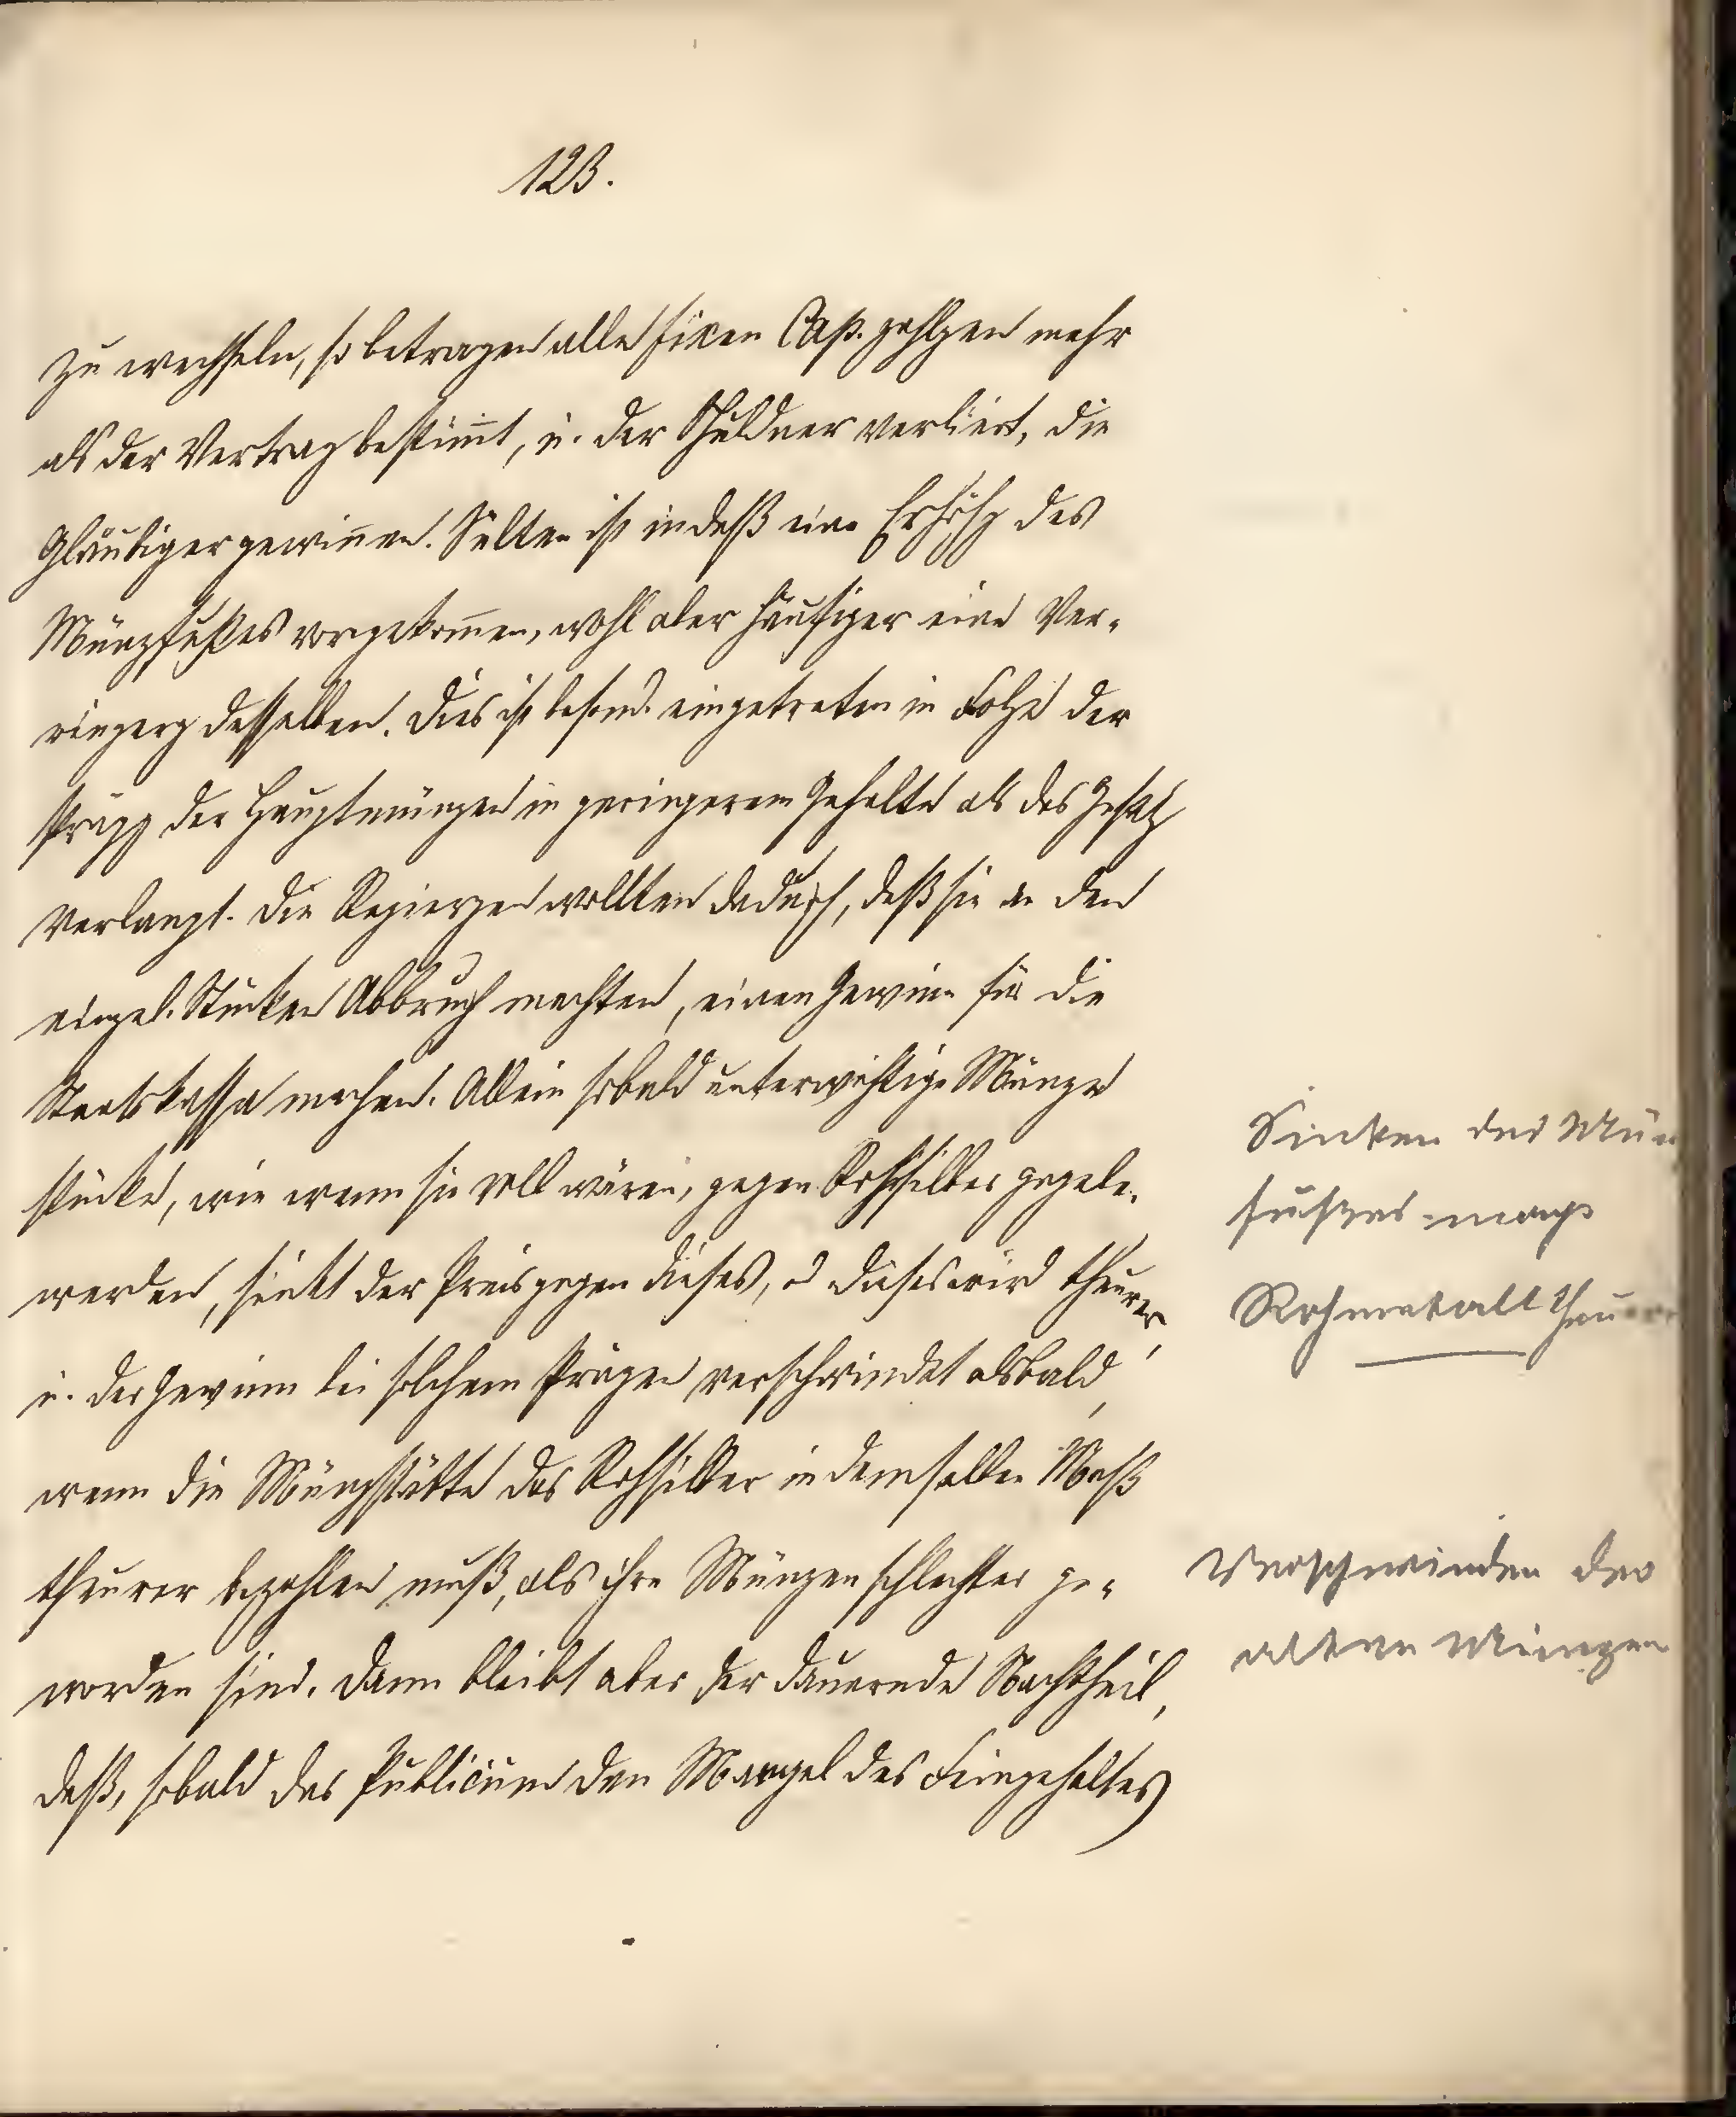 123.
zu wechseln, so betragen alle fixen Cap. zahlgen mehr
als der Vertrag bestimt, u. der Schuldner verliert, die
Gläubiger gewinen. Selten ist indeß eine Erhöhg des
Münzfußes vorgekomen, wohl aber häufiger eine Ver-
ringerg desselben. Dies ist besond. eingetreten in Folge der
Prägg der Hauptmünzen in geringerem Gehalte als das Gesetz
verlangt. Die Regiergen wollten dadurch, daß sie an den
einzel. Stücken Abbruch machten, einen Gewinn für die
Staatskassa machen. Allein sobald unterwichtige Münz
stücke, wie wenn sie voll wären, gegen Rohsilber gegebe.
werden, sinkt der Preis gegen dieses, od dieses wird theurer,
u. der Gewinn bei solchem Prägen verschwindet alsbald,
wenn die Münzstätte das Rohsilber in demselben Maß
theurer bezahlen muß, als ihre Münzen schlechter ge-
worden sind. Dann bleibt aber der dauernde Nachtheil,
daß, sobald das Publicum den Mangel des Feingehaltes
Sinken des Mün
fußes macht
Rohmetall theurer
Verschwinden der
alten Münzen